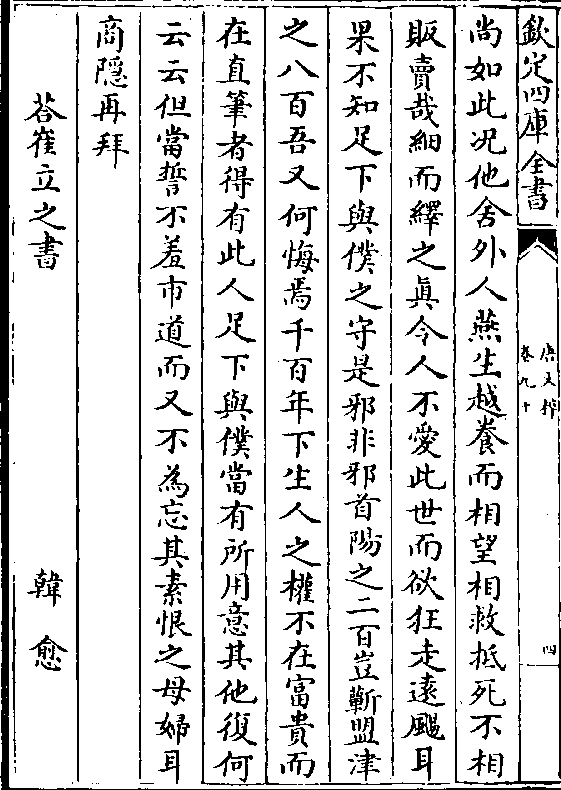 欽定四庫全書
唐文粹
卷九十
四
尚如此况他舍外人燕生越養而相望相救抵死不相
販賣哉細而繹之真令人不愛此世而欲狂走遠颺耳
果不知足下與僕之守是邪非邪首陽之二百豈蘄盟津
之八百吾又何悔焉千百年下生人之權不在富貴而
在直筆者得有此人足下與僕當有所用意其他復何
云云但當誓不羞市道而又不為忘其素恨之母婦耳
商隱再拜
荅崔立之書　韓愈